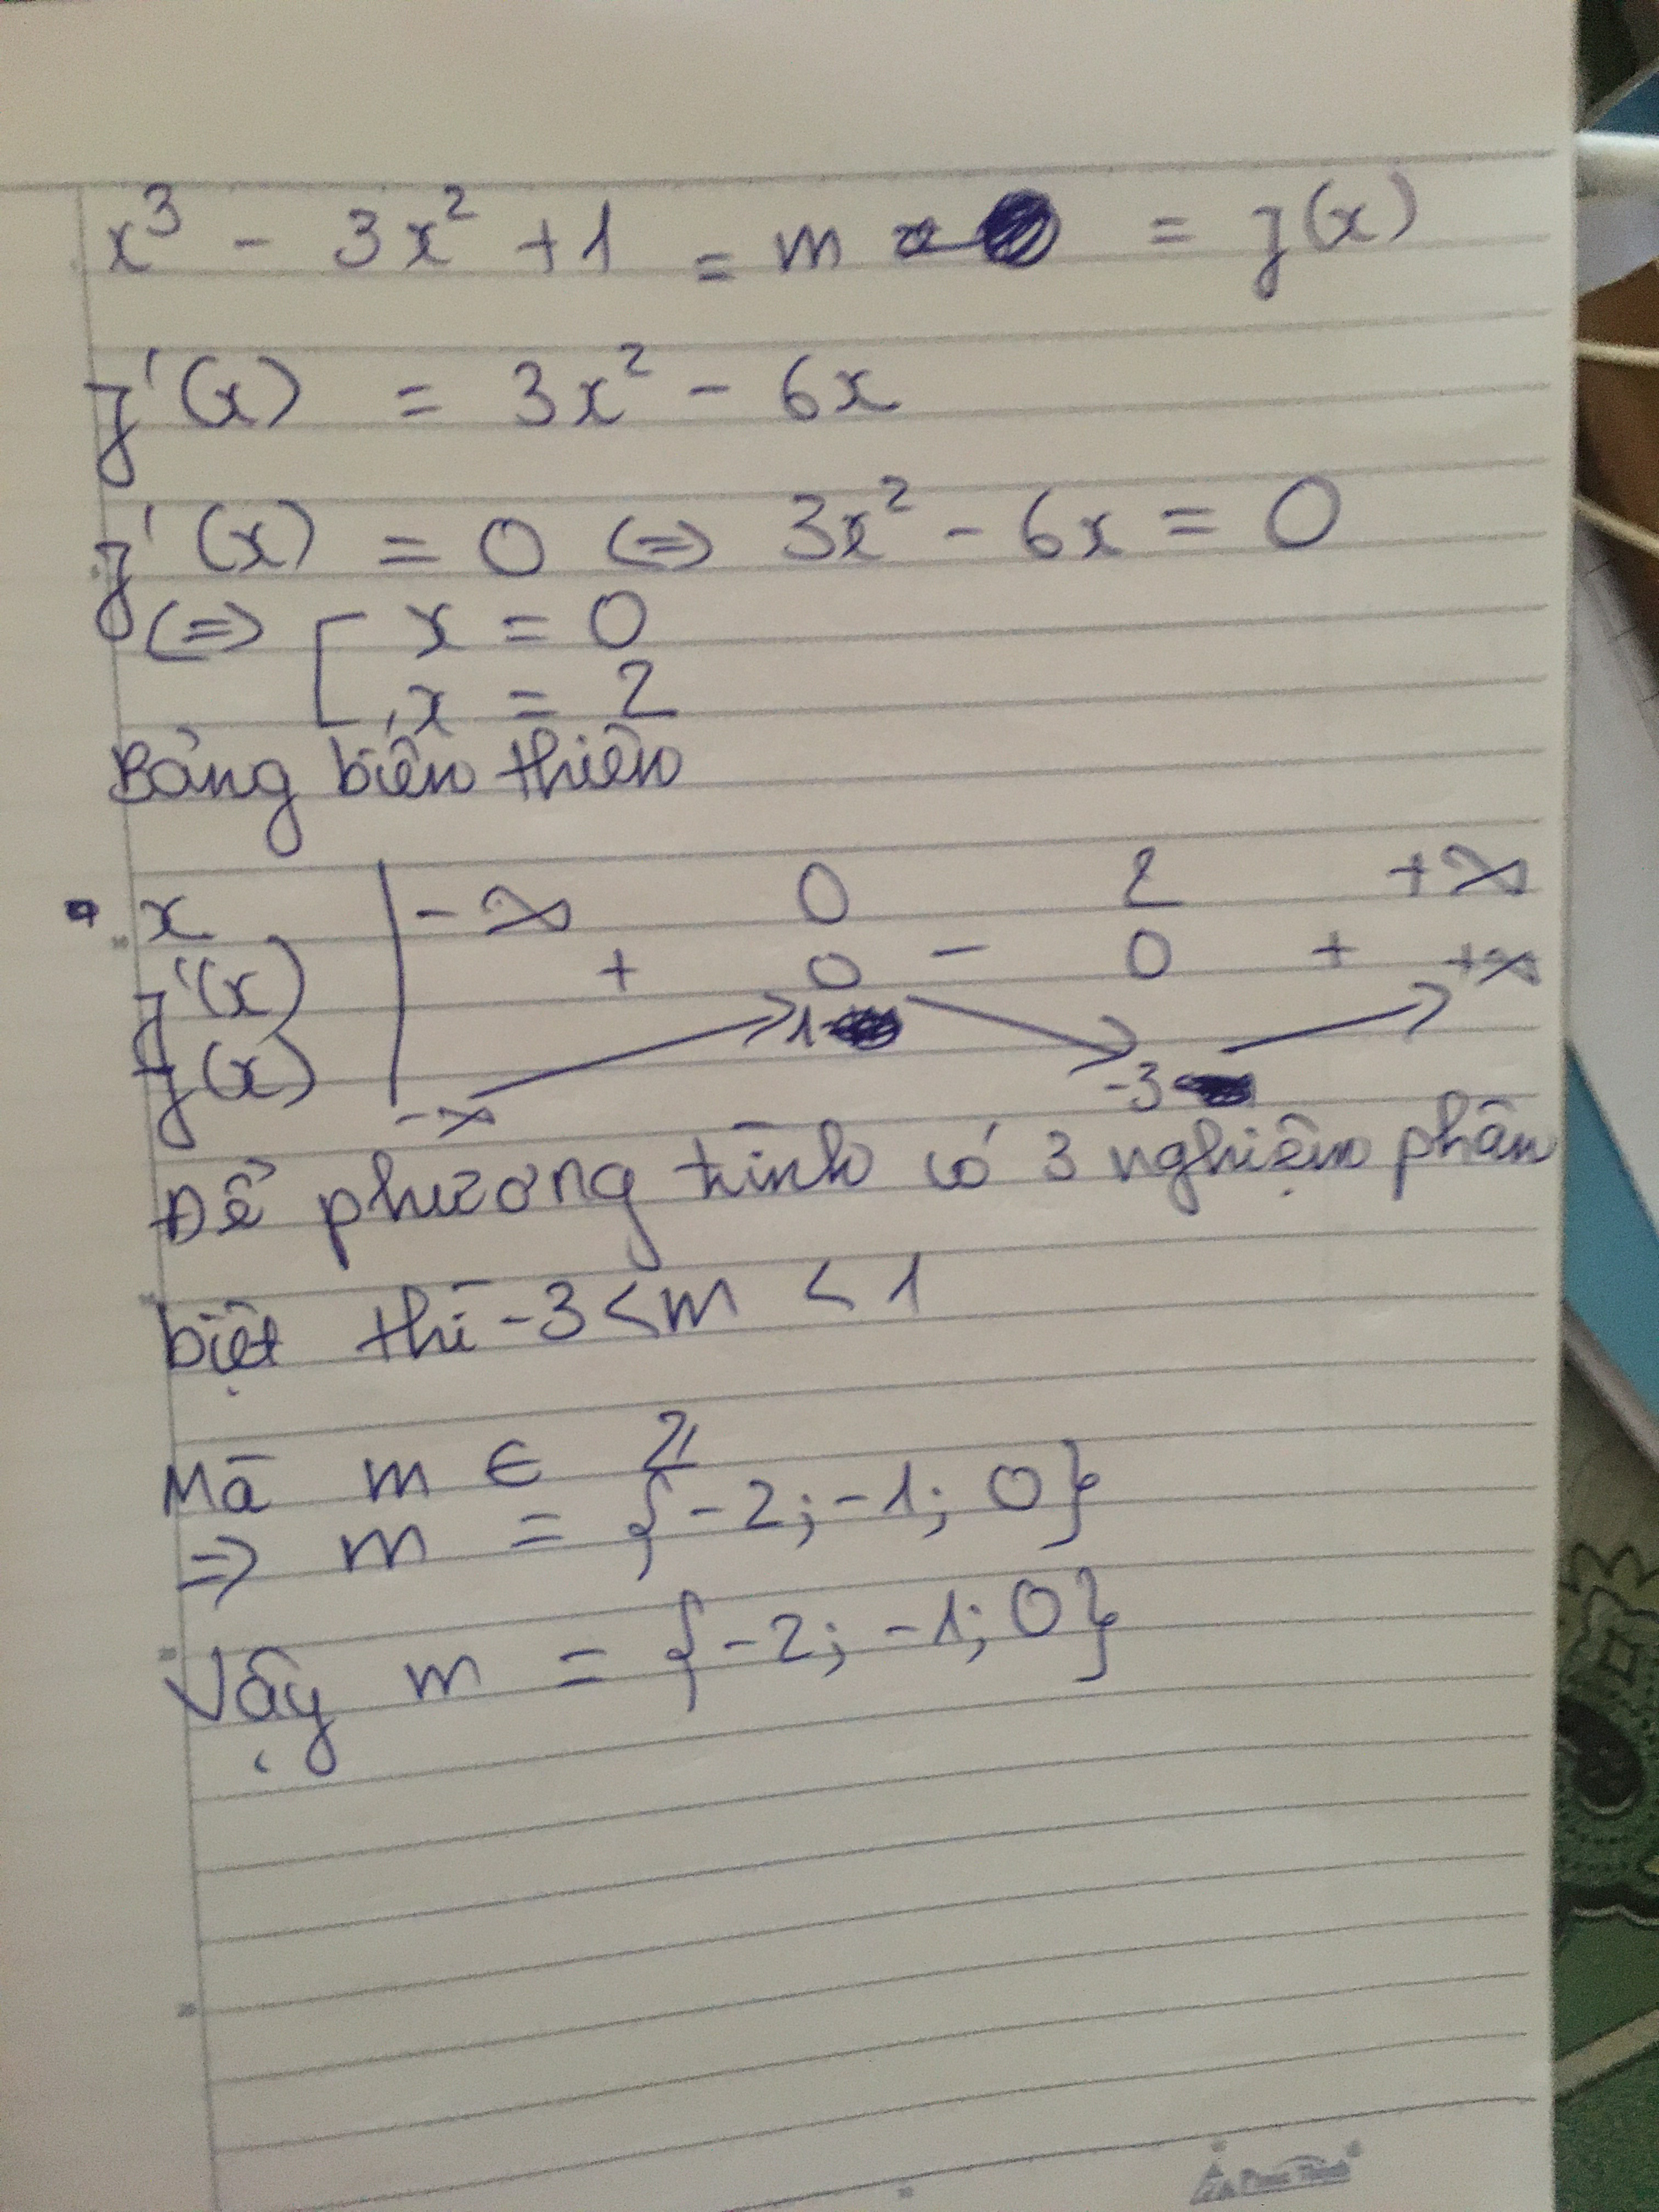 x³ - 3x² + 1 = m = f(x)
f'(x) = 3x² - 6x
f'(x) = 0 (=) 3x² - 6x = 0
(=) [ x = 0
x = 2
Bảng biến thiên
x | -∞ 0 2 +∞
f'(x) + 0 - 0 + +∞
f(x) -∞ 1 -3
Để phương trình có 3 nghiệm phân
biệt thì -3 < m < 1
Mà m ∈ ℤ
=> m = {-2; -1; 0}
Vậy m = {-2; -1; 0}